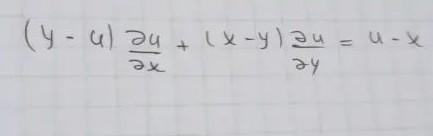 (y - u) ∂u/∂x + (x - y) ∂u/∂y = u - x